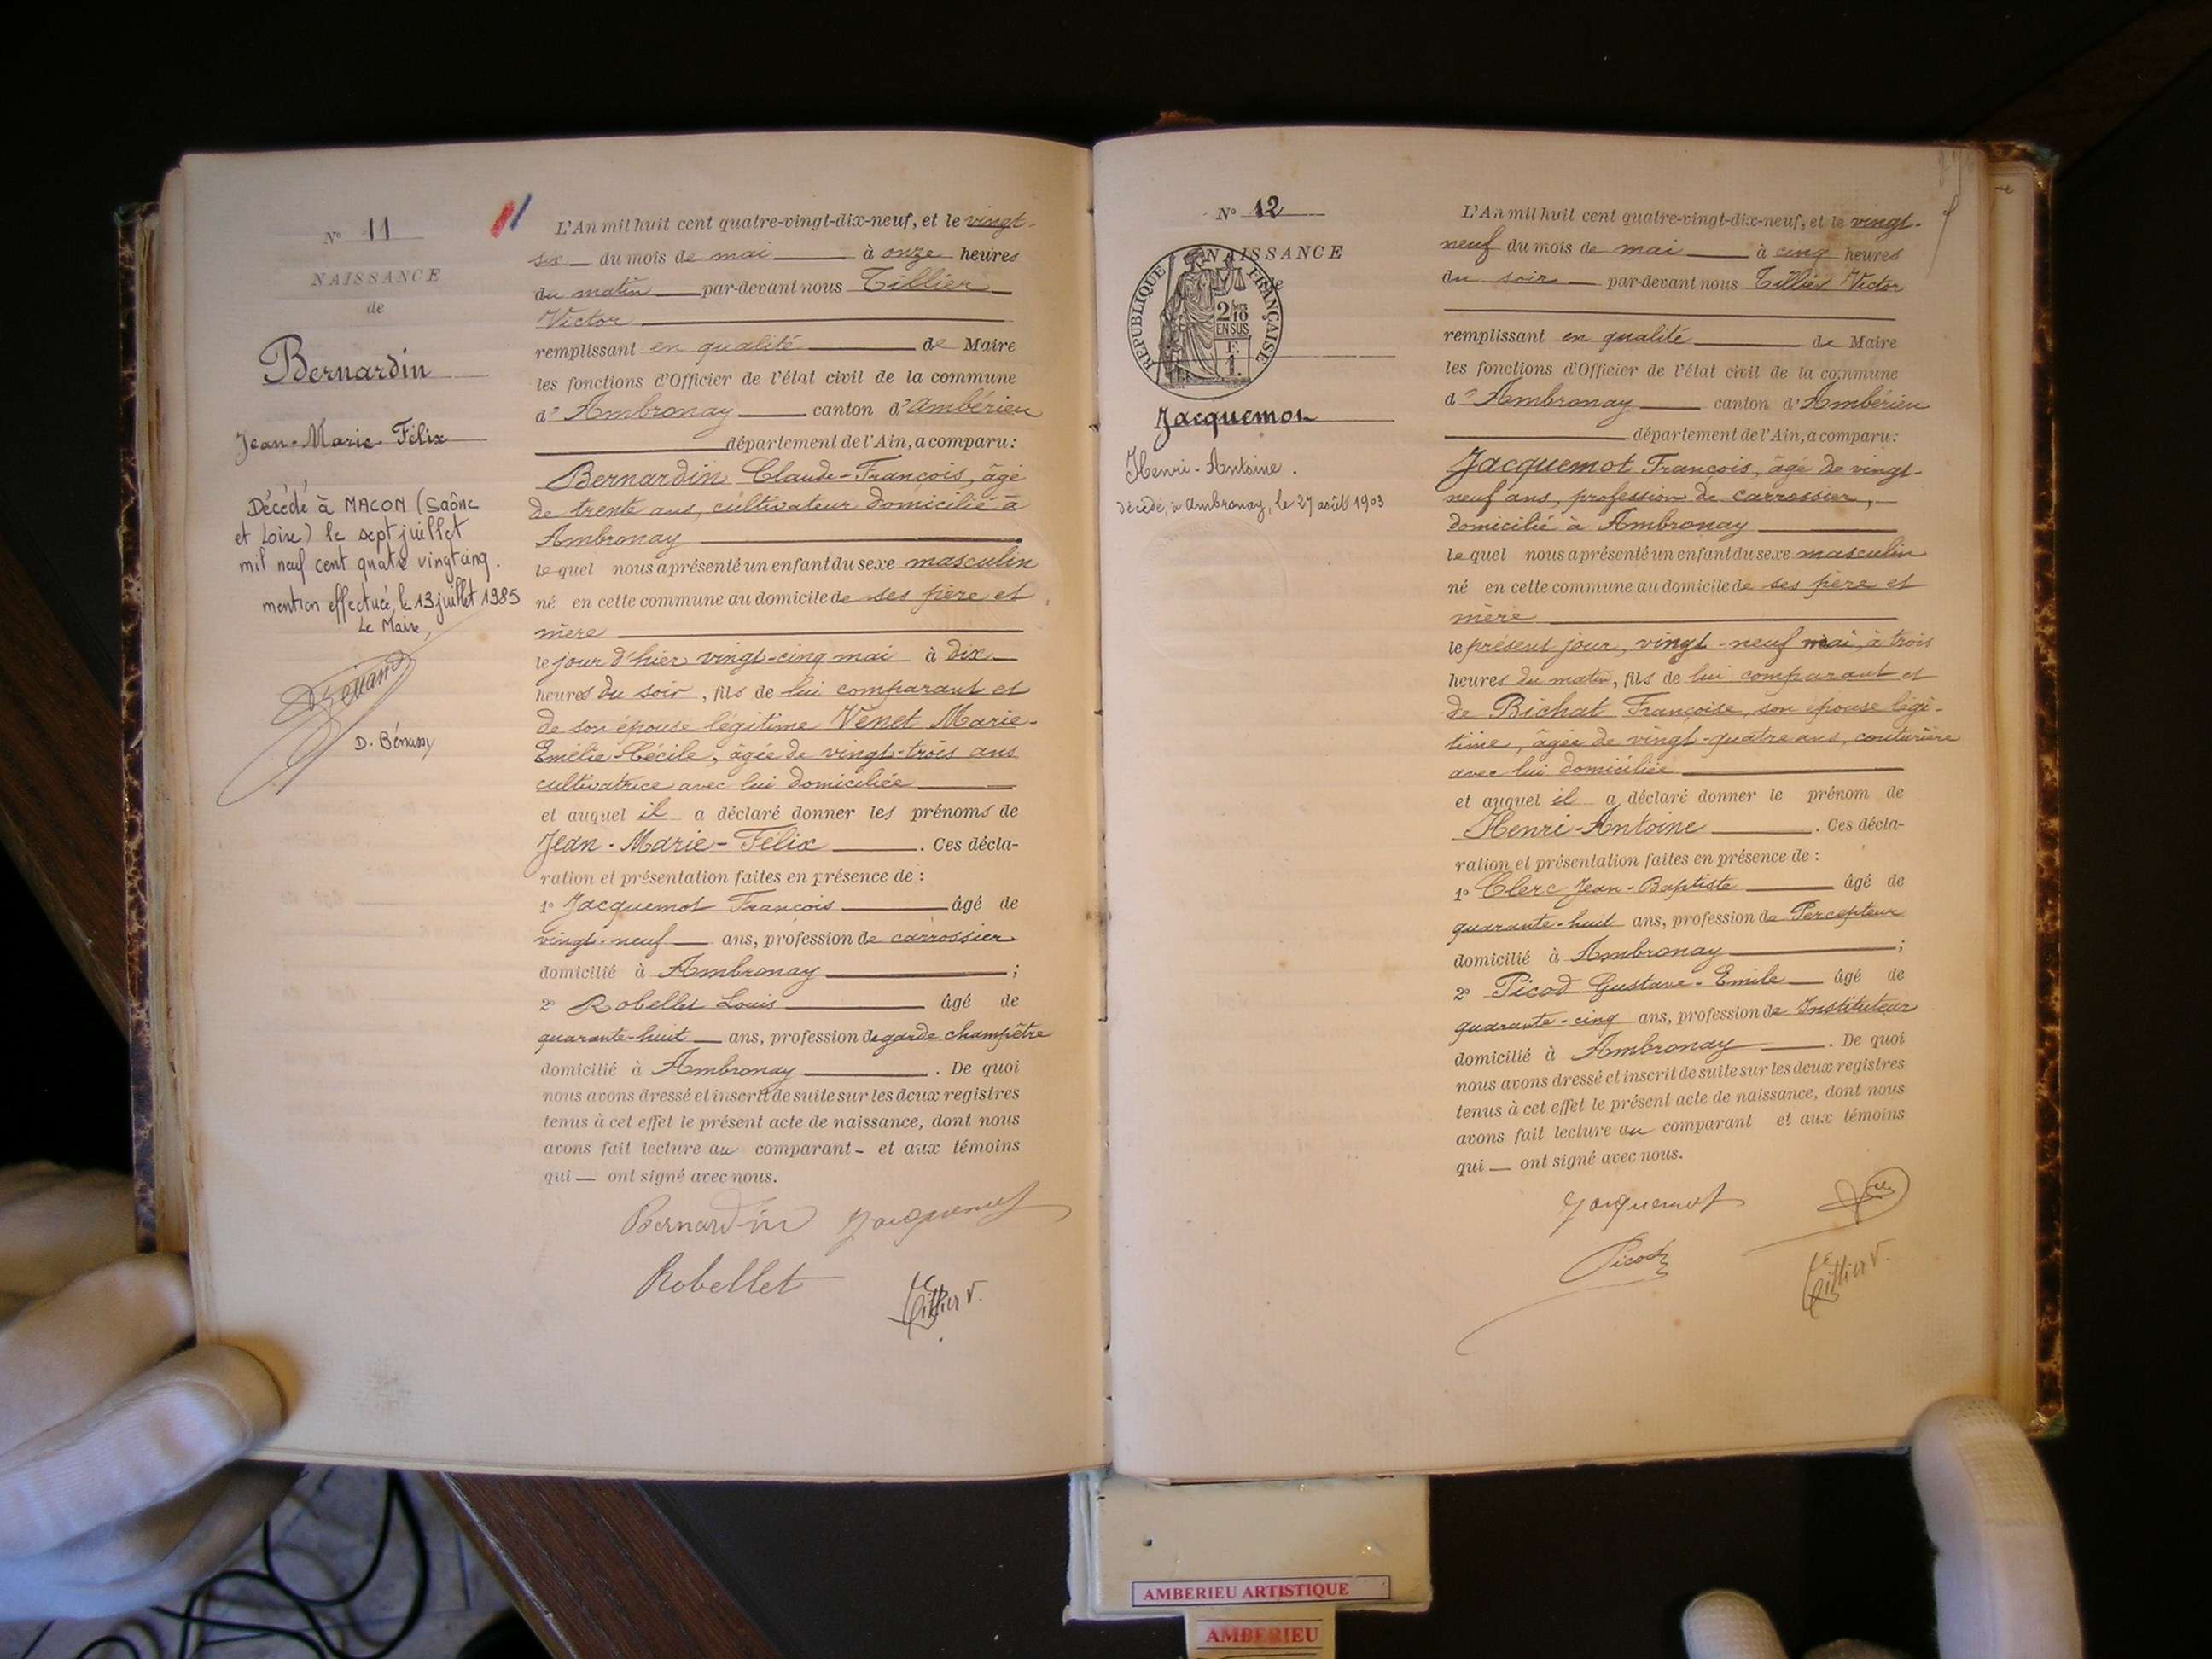 Nº 11
NAISSANCE
de
Bernardin
Jean-Marie Félix
Décédé à MACON (Saône
et Loire) le sept juillet
mil neuf cent quatre vingt cinq.
mention effectuée le 13 juillet 1985
Le Maire,
D. Bénassy
11
L'An mil huit cent quatre-vingt-dix-neuf, et le vingt-
six du mois de mai à onze heures
du matin par-devant nous Tillier
Victor
remplissant en qualité de Maire
les fonctions d'Officier de l'état civil de la commune
d'Ambronay canton d'Ambérieu
département de l'Ain, a comparu :
Bernardin Claude-François, âgé
de trente ans, cultivateur domicilié à
Ambronay
lequel nous a présenté un enfant du sexe masculin
né en cette commune au domicile de ses père et
mère
le jour d'hier vingt-cinq mai à dix
heures du soir, fils de lui comparant et
de son épouse légitime Venet Marie-
Emélie-Cécile, âgée de vingt-trois ans
cultivatrice avec lui domiciliée
et auquel il a déclaré donner les prénoms de
Jean-Marie-Félix. Ces décla-
ration et présentation faites en présence de :
1º Jacquemot François âgé de
vingt-neuf ans, profession de carrossier
domicilié à Ambronay ;
2º Robellet Louis âgé de
quarante-huit ans, profession de garde champêtre
domicilié à Ambronay. De quoi
nous avons dressé et inscrit de suite sur les deux registres
tenus à cet effet le présent acte de naissance, dont nous
avons fait lecture au comparant et aux témoins
qui ont signé avec nous.
Bernardin Jacquemot
Robellet Tillier V.
Nº 12
NAISSANCE
de
REPUBLIQUE FRANÇAISE
2/10
EN SUS
F.
1.
Jacquemot
Henri-Antoine.
décédé, à Ambronay, le 27 août 1903
L'An mil huit cent quatre-vingt-dix-neuf, et le vingt-
neuf du mois de mai à cinq heures
du soir par-devant nous Tillier Victor
remplissant en qualité de Maire
les fonctions d'Officier de l'état civil de la commune
d'Ambronay canton d'Ambérieu
département de l'Ain, a comparu :
Jacquemot François, âgé de vingt-
neuf ans, profession de carrossier,
domicilié à Ambronay
lequel nous a présenté un enfant du sexe masculin
né en cette commune au domicile de ses père et
mère
le présent jour, vingt-neuf mai, à trois
heures du matin, fils de lui comparant et
de Bichat Françoise, son épouse légi-
time, âgée de vingt-quatre ans, couturière
avec lui domiciliée
et auquel il a déclaré donner le prénom de
Henri-Antoine. Ces décla-
ration et présentation faites en présence de :
1º Clerc Jean-Baptiste âgé de
quarante-huit ans, profession de Percepteur
domicilié à Ambronay ;
2º Picod Gustave-Emile âgé de
quarante-cinq ans, profession de Instituteur
domicilié à Ambronay. De quoi
nous avons dressé et inscrit de suite sur les deux registres
tenus à cet effet le présent acte de naissance, dont nous
avons fait lecture au comparant et aux témoins
qui ont signé avec nous.
Jacquemot
Picod Tillier V.
AMBERIEU ARTISTIQUE
AMBERIEU